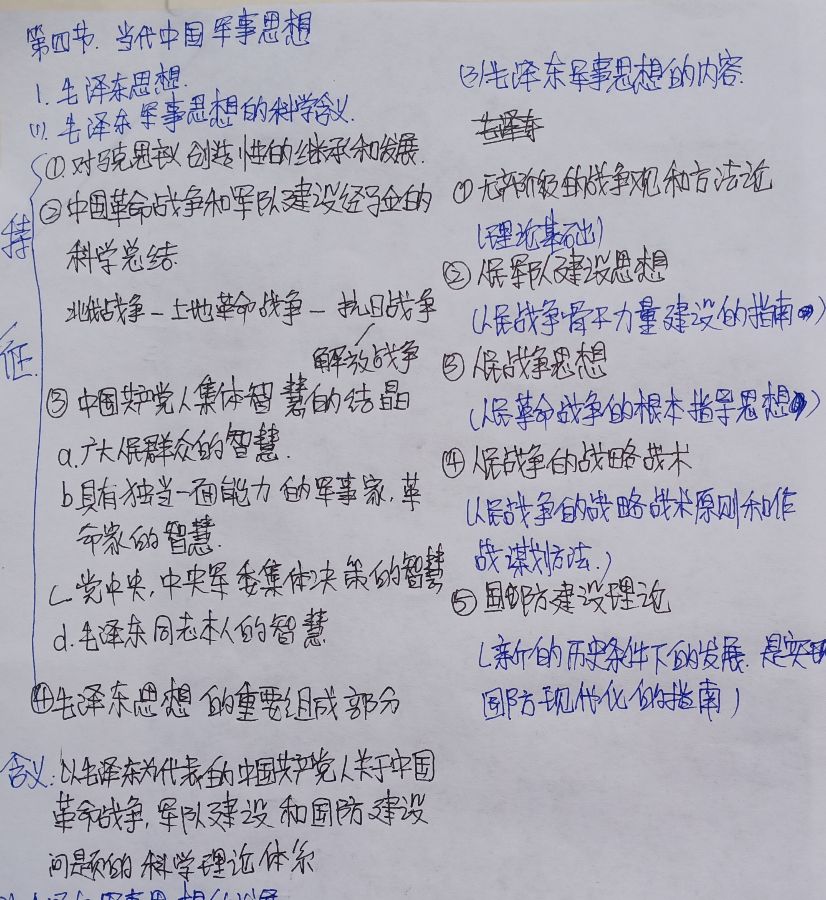 第四节. 当代中国军事思想
1. 毛泽东思想.
(1). 毛泽东军事思想的科学含义.
特征
① 对马克思主义创造性的继承和发展.
② 中国革命战争和军队建设经验的
科学总结
北伐战争－土地革命战争－抗日战争
解放战争
③ 中国共产党人集体智慧的结晶
a. 广大人民群众的智慧.
b 具有独当一面能力的军事家, 革
命家的智慧.
c. 党中央, 中央军委集体决策的智慧
d. 毛泽东同志本人的智慧
④ 毛泽东思想的重要组成部分
含义: 以毛泽东为代表的中国共产党人关于中国
革命战争, 军队建设和国防建设
问题的科学理论体系
(3) 毛泽东军事思想的内容.
毛泽东
① 无产阶级的战争观和方法论
(理论基础)
② 人民军队建设思想
(人民战争骨干力量建设的指南)
③ 人民战争思想
(人民革命战争的根本指导思想)
④ 人民战争的战略战术
(人民战争的战略战术原则和作
战谋划方法.)
⑤ 国防建设理论
(新的历史条件下的发展. 是实现
国防现代化的指南)